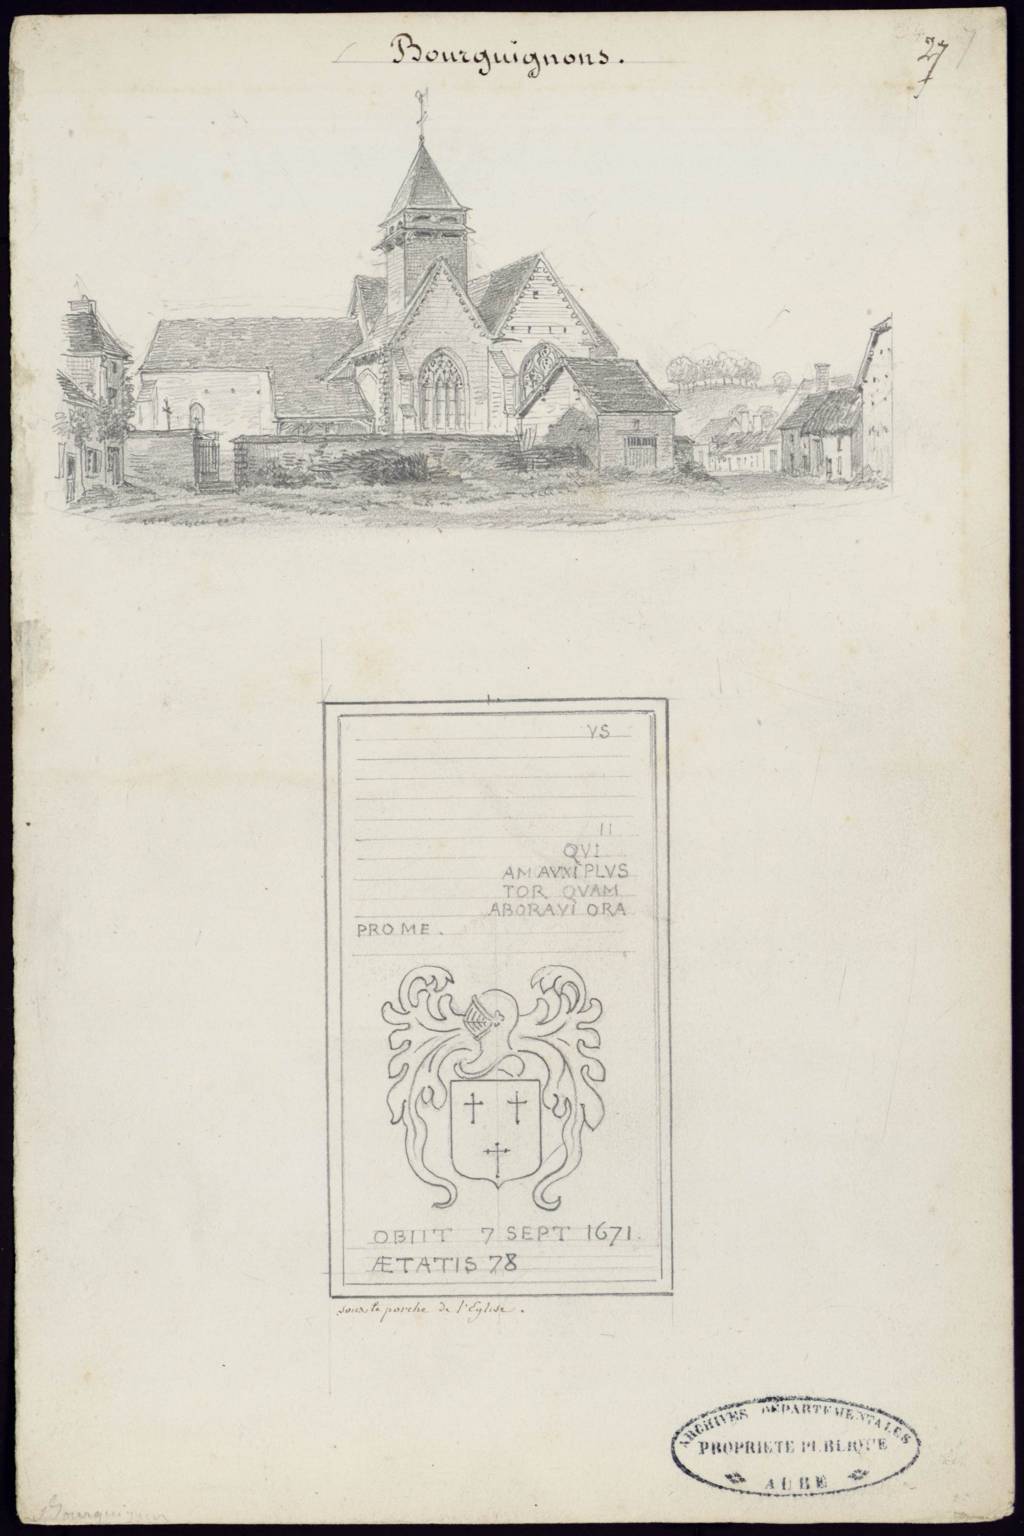 Bourguignons.
27
VS
II
QVI
AM AVXI PLVS
TOR QVAM
ABORAVI ORA
PRO ME.
OBIIT 7 SEPT 1671.
ÆTATIS 78
sous le porche de l'Eglise.
ARCHIVES DÉPARTEMENTALES
PROPRIETE PUBLIQUE
AUBE
Bourguignons